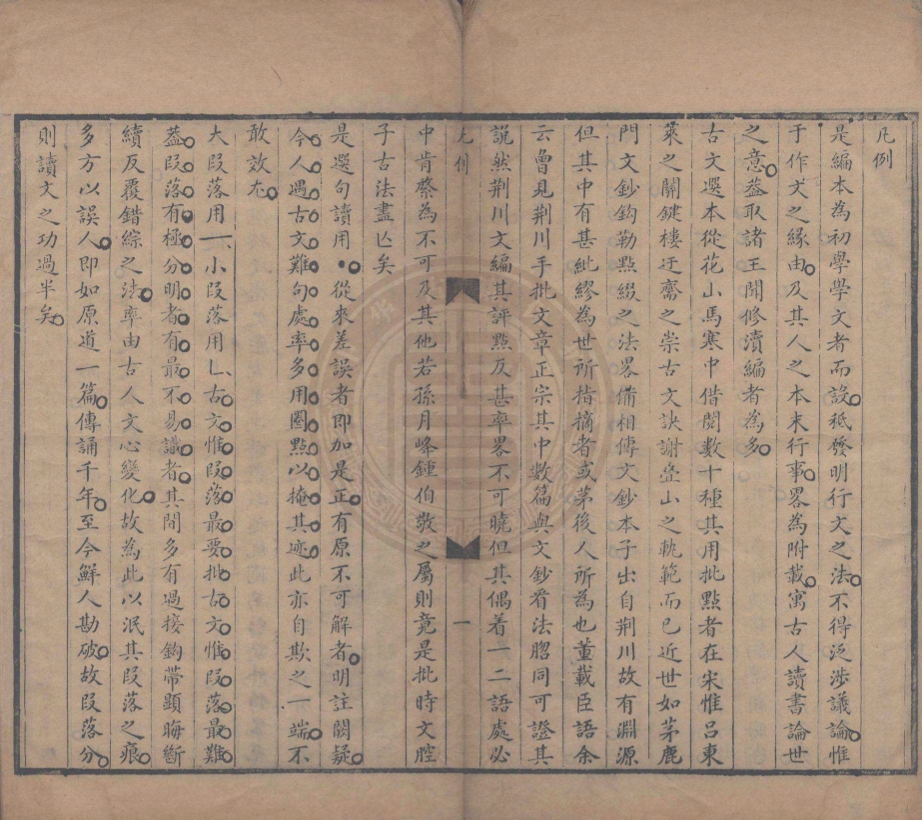 凡例
是編本為初學學文者而設祗發明行文之法不得泛涉議論惟
于作文之緣由及其人之本末行事畧為附載寓古人讀書論世
之意葢取諸王聞修瀆編者為多
古文選本從花山馬寒中借閱數十種其用批點者在宋惟呂東
萊之關鍵樓迂齋之崇古文訣謝疊山之軌範而已近世如茅鹿
門文鈔鈎勒點綴之法畧備相傳文鈔本子出自荆川故有淵源
但其中有甚紕繆為世所指摘者或茅後人所為也董載臣語余
云曾見荆川手批文章正宗其中數篇與文鈔看法脗同可證其
說然荆川文編其評點反甚率畧不可曉但其偶着一二語處必
凡例
一
中肯綮為不可及其他若孫月峰鍾伯敬之屬則竟是批時文腔
子古法盡亾矣
是選句讀用•從來差誤者即加是正有原不可解者明註闕疑
今人遇古文難句處率多用圈點以掩其迹此亦自欺之一端不
敢效尤
大段落用一、小段落用乚、古文惟段落最要批古文惟段落最難
葢段落有極分明者有最不易識者其間多有過接鈎帶顯晦斷
續反覆錯綜之法率由古人文心變化故為此以泯其段落之痕
多方以誤人即如原道一篇傳誦千年至今鮮人勘破故段落分
則讀文之功過半矣